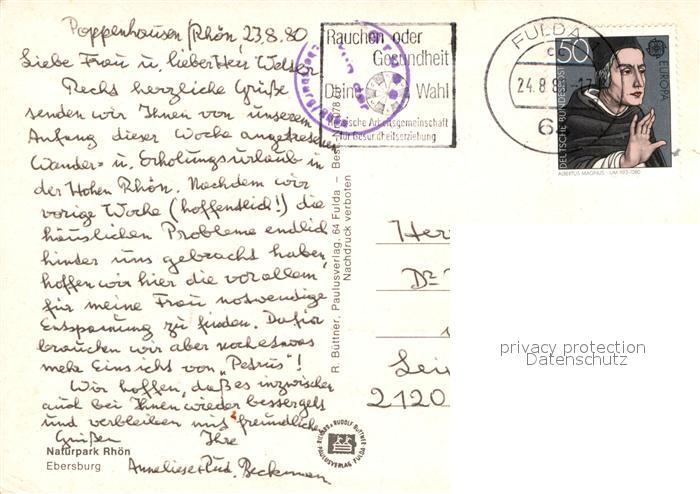 Poppenhausen/Rhön, 23.8.80
Liebe Frau u. lieber Herr Welser
Recht herzliche Grüße
senden wir Ihnen von unserem
Anfang dieser Woche angetretenen
Wander= u. Erholungsurlaub in
der Hohen Rhön. Nachdem wir
vorige Woche (hoffentlich!) die
häuslichen Probleme endlich
hinter uns gebracht haben,
hoffen wir hier die vor allem
für meine Frau notwendige
Entspannung zu finden. Dafür
brauchen wir aber noch etwas
mehr Einsicht von "Petrus"!
Wir hoffen, daß es inzwischen
auch bei Ihnen wieder besser geht
und verbleiben mit freundlichen
Grüßen Ihre
Anneliese + Rud. Beckmann
Naturpark Rhön
Ebersburg
R. Büttner, Paulusverlag, 64 Fulda – Best
Nachdruck verboten
RICHARD & RUDOLF BÜTTNER
PAULUSVERLAG FULDA
Rauchen oder
Gesundheit
Deine Wahl
Hessische Arbeitsgemeinschaft
für Gesundheitserziehung
FULDA 1
24.8.8 -17
64
50
EUROPA
DEUTSCHE BUNDESPOST
ALBERTUS MAGNUS · UM 1193-1280
Her
Dr.
Lei
2120
privacy protection
Datenschutz